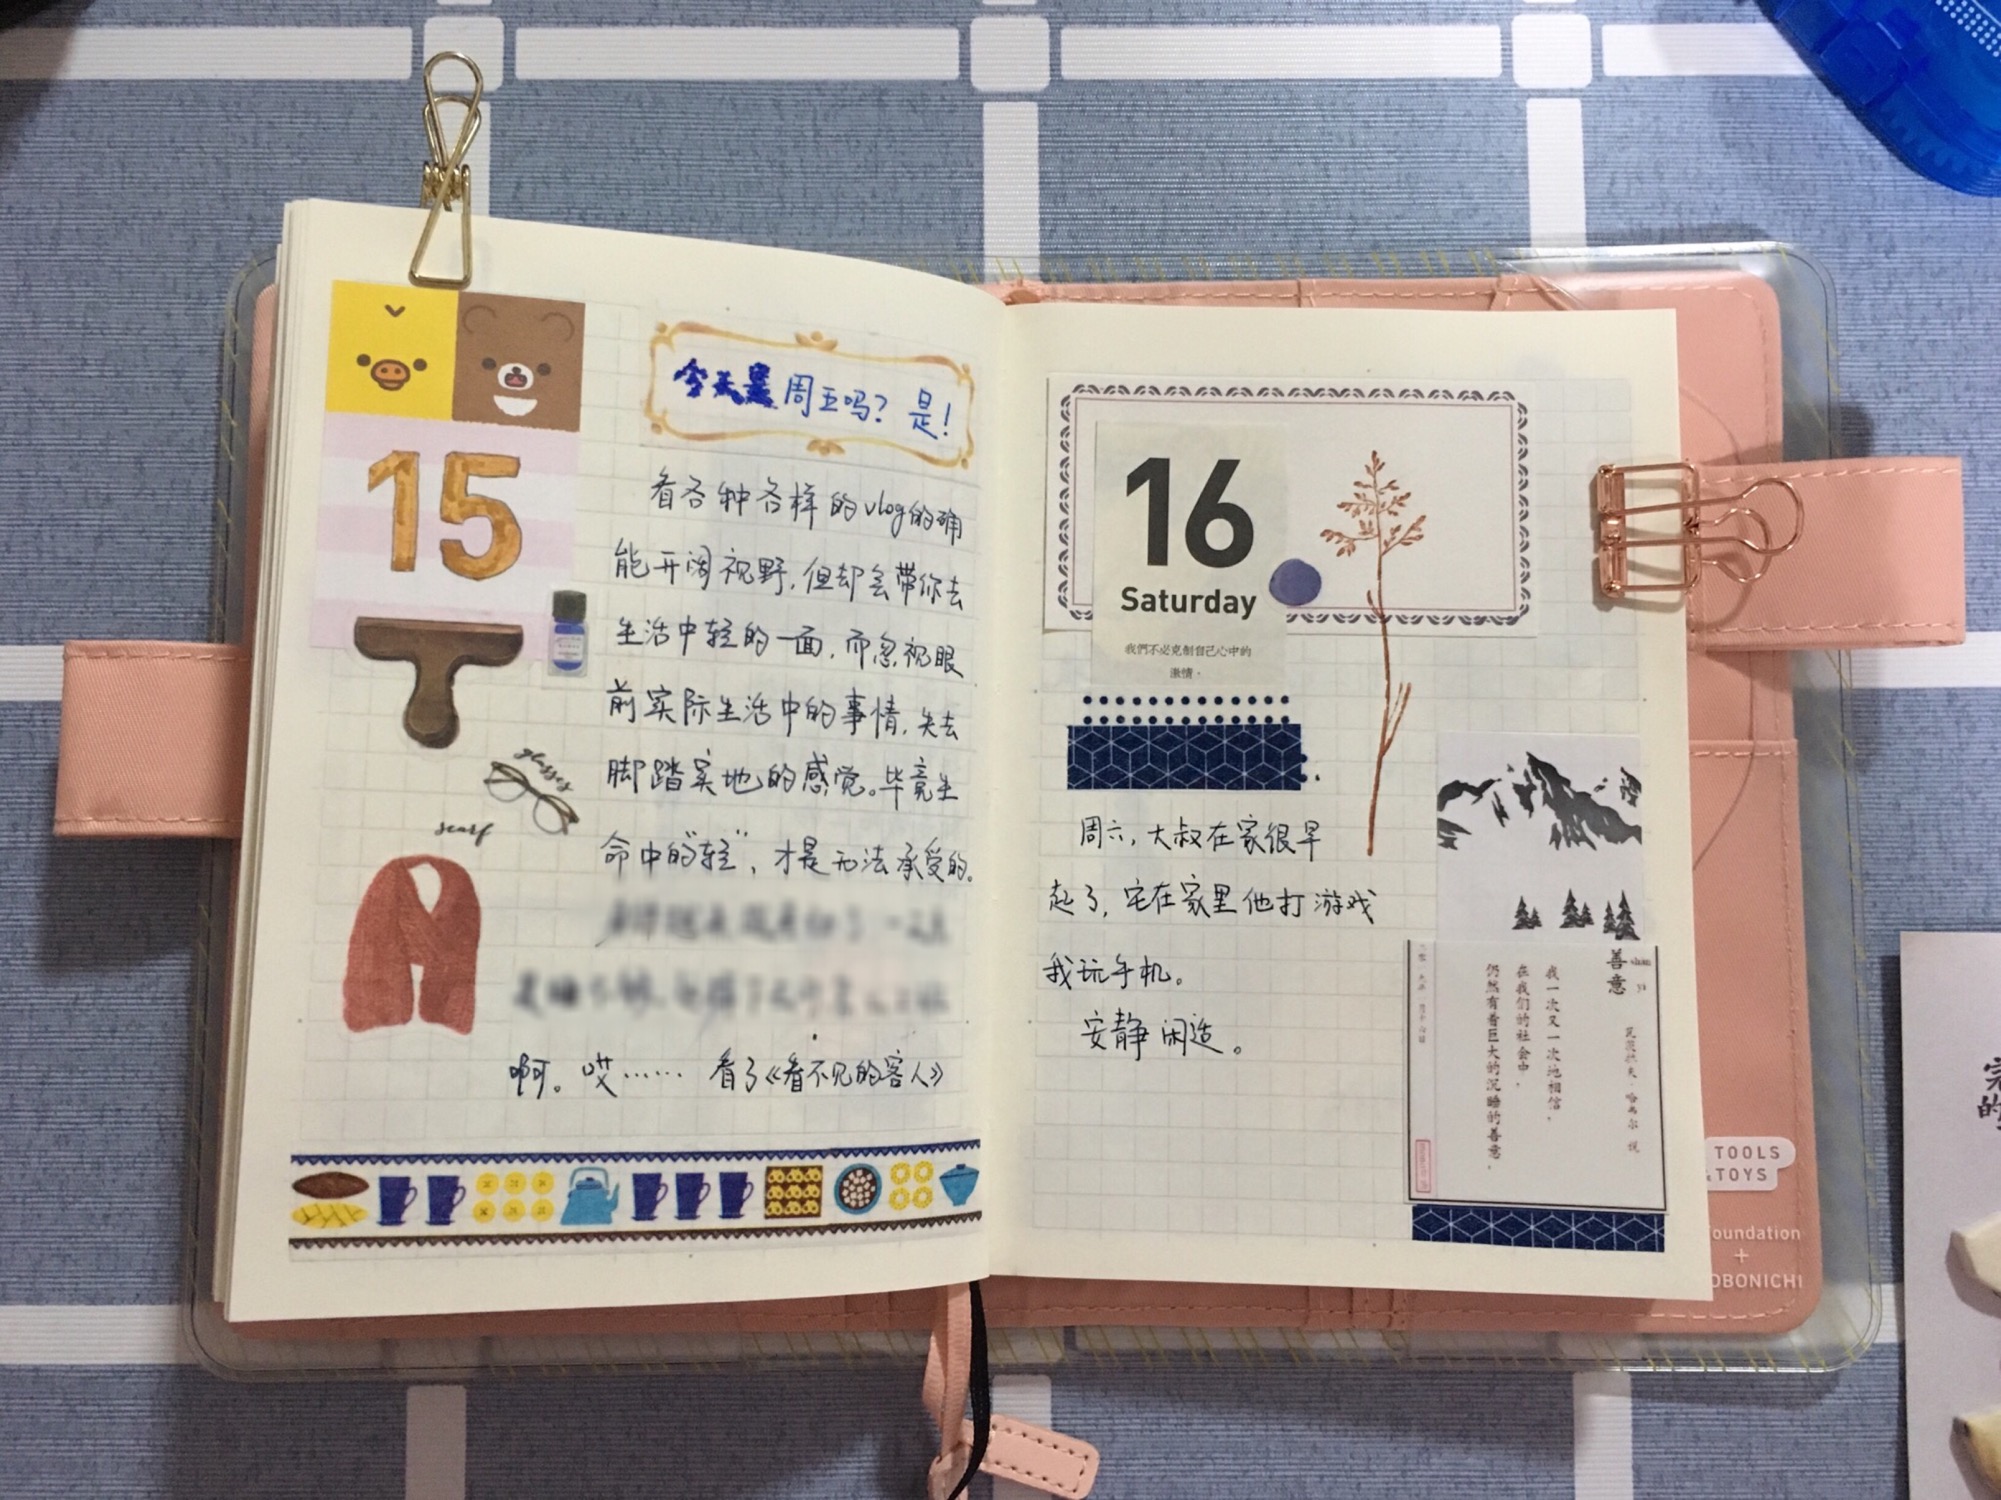 15
今天是周五吗？是！
看各种各样的vlog的确
能开阔视野，但却会带你去
生活中轻的一面，而忽视眼
前实际生活中的事情，失去
脚踏实地的感觉。毕竟生
命中的"轻"，才是无法承受的。
啊。哎…… 看了《看不见的客人》
glasses
scarf
16
Saturday
我們不必克制自己心中的
激情。
周六，大叔在家很早
起了，宅在家里他打游戏
我玩手机。
安静闲适。
善意
shan yi
瓦茨拉夫·哈维尔 说
我一次又一次地相信，
在我们的社会中，
仍然有着巨大的沉睡的善意。
TOOLS
& TOYS
foundation
+
HOBONICHI